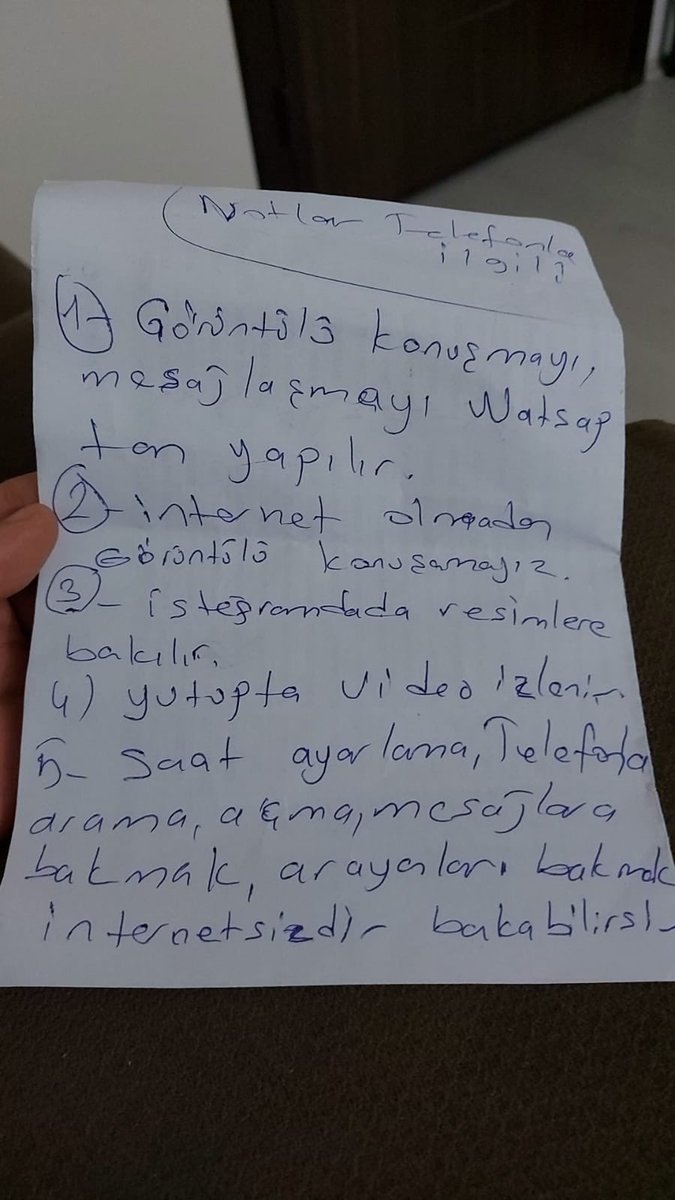 Notlar Telefonla
ilgili
1- Görüntülü konuşmayı,
mesajlaşmayı Watsap
tan yapılır.
2- internet olmadan
Görüntülü konuşamayız.
3- istegramdada resimlere
bakılır.
4) yutupta video izlenir.
5- saat ayarlama, Telefonla
arama, açma, mesajlara
bakmak, arayanları bakmak
internetsizdir bakabilirsi